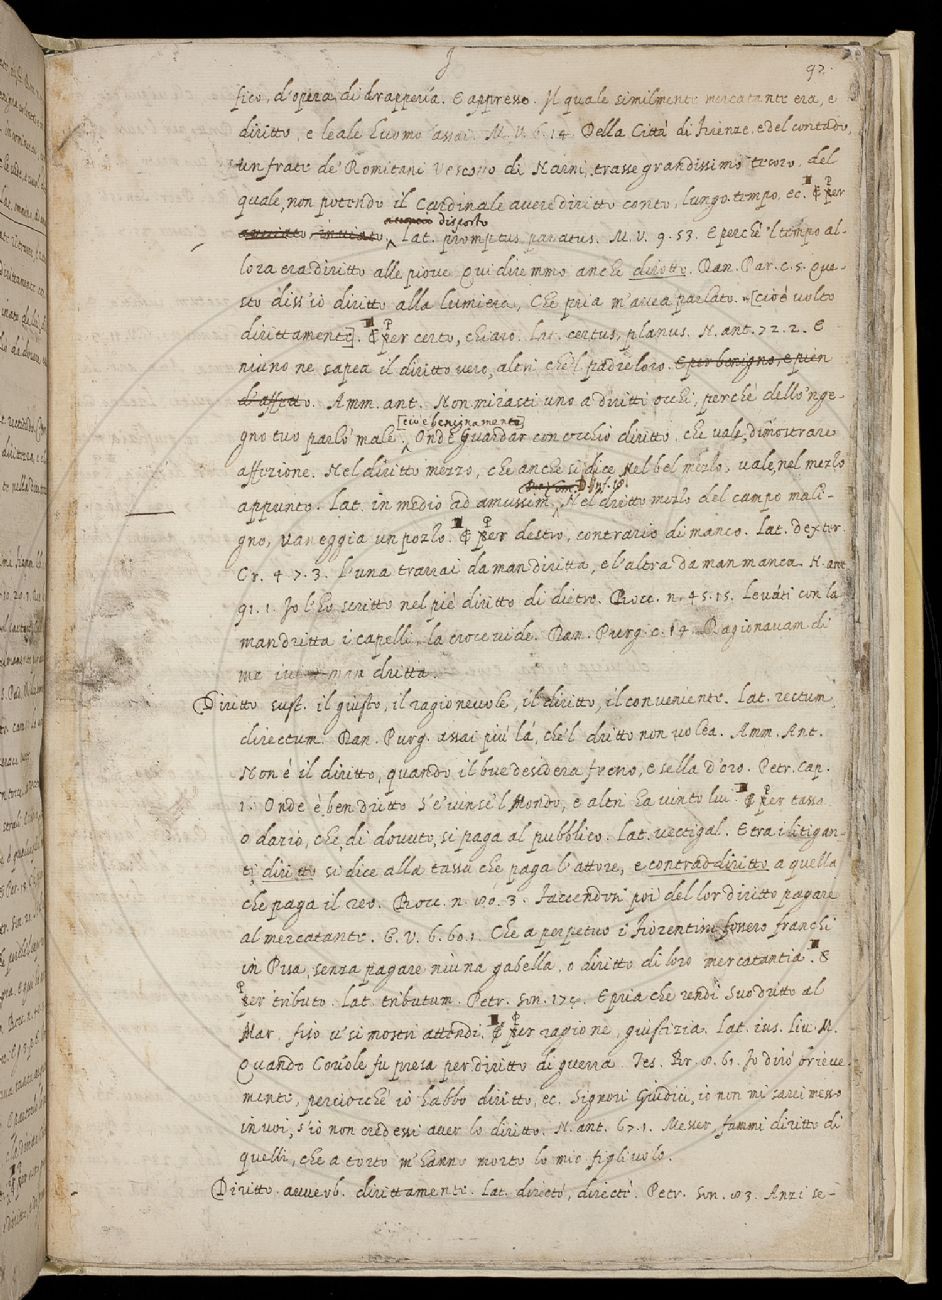 J
92.
fico, d'opera di drapperia. E appresso. Il quale similmente mercatante era, e
diritto, e leale huomo assai. M. V. 6. 14. Della Città di Firenze, e del contado,
un frate de' Romitani Vescovo di Narni, trasse grandissimo tesoro, del
quale, non potendo il Cardinale avere diritto conto, lungo tempo, ec. ¶ Per
disposto
Lat. promptus, paratus. M. V. 9. 53. E perchè 'l tempo al-
lora era diritto alle piove. Qui diremmo anche dirotto. Dan. Par. c. 5. Que-
sto diss'iò diritto alla lumiera, Che pria m'avea parlato. [cioè volto
dirittamente]. ¶ Per certo, chiaro. Lat. certus, planus. N. ant. 72. 2. E
niuno ne sapea il diritto vero, altri che 'l padre loro. E per benigno, e pien
d'affetto. Amm. ant. Non mirasti uno a diritti occhi, perchè dello 'nge-
[cioè benignamente]
gno tuo parlò male. Onde Guardar con occhio diritto, che vale, dimostrare
affezione. Nel diritto mezzo, che anche si dice, Nel bel mezzo, vale, nel mezzo
D. Inf. 18.
appunto. Lat. in medio ad amussim. Nel diritto mezzo del campo mali-
gno, Vaneggia un pozzo. ¶ Per destro, contrario di manco. Lat. dexter.
Cr. 4. 7. 3. L'una trarrai da man diritta, e l'altra da man manca. N. ant.
91. 1. Io l'ho scritto nel piè diritto di dietro. Bocc. n. 45. 15. Levati con la
man dritta i capelli, la croce vide. Dan. Purg. c. 14. Ragionavam di
me ivi a man dritta.
Diritto sust. il giusto, il ragionevole, il diritto, il conveniente. Lat. rectum,
directum. Dan. Purg. assai più là, che 'l dritto non volea. Amm. Ant.
Non è il diritto, quando il bue desidera freno, e sella d'oro. Petr. cap.
1. Onde è ben dritto S'ei vinse 'l Mondo, e altri ha vinto lui. ¶ Per tassa
o dazio, che, di dovuto, si paga al pubblico. Lat. vectigal. E tra i litigan-
ti, diritto si dice alla tassa che paga l'attore, e contraddiritto a quella
che paga il reo. Bocc. n. 80. 3. Faccendosi poi del lor diritto pagare
al mercatante. G. V. 6. 60. 1. Che a perpetuo i Fiorentini fossero franchi
in Pisa, senza pagare niuna gabella, o diritto di loro mercatantia. E
per tributo. Lat. tributum. Petr. son. E pria che rendi Suo dritto al
Mar, fiso u' si mostri attendi. ¶ Per ragione, giustizia. Lat. ius. Liv. M.
Quando Coriole fu presa per diritto di guerra. Tes. Br. 8. 61. Io dirò brieve-
mente, perciocchè io habbo diritto, ec. Signori Giudici, io non mi sarei messo
in voi, s'io non credessi aver lo diritto. N. ant. 67. 1. Messer, fammi diritto di
quelli, che a torto m'hanno morto lo mio figliuolo.
Diritto. avverb. dirittamente. Lat. directò, directè. Petr. son. 83. Anzi se-